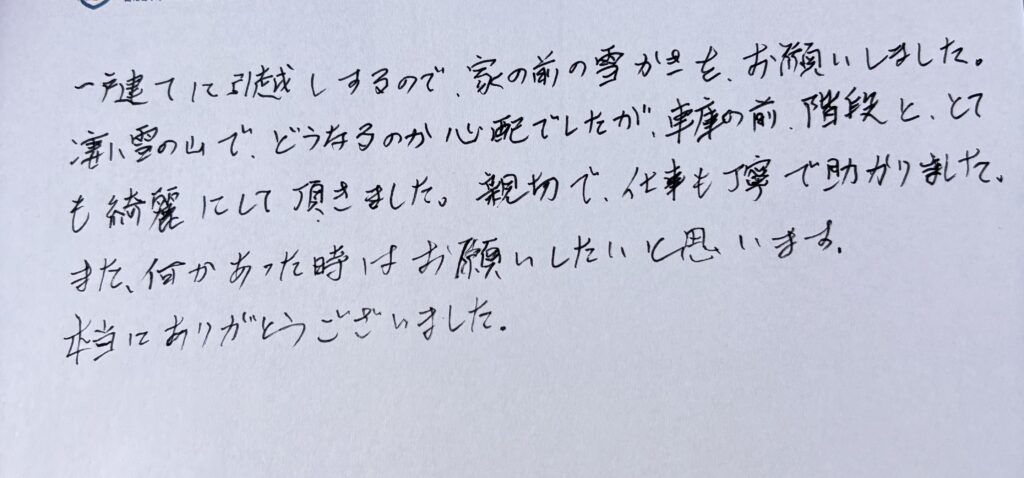 一戸建てに引越しするので、家の前の雪かきを、お願いしました。
凄い雪の山で、どうなるのか心配でしたが、車庫の前、階段と、とて
も綺麗にして頂きました。親切で、仕事も丁寧で助かりました。
また、何かあった時はお願いしたいと思います。
本当にありがとうございました。